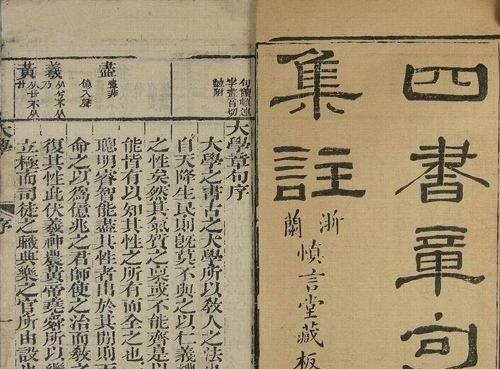 四書章句
集註
浙
蘭
慎言堂藏板
盡
羲
黃
大學章句序
大學之書古之大學所以敎人之法
自天降生民則旣莫不與之以仁義
之性矣然其氣質之稟或不能齊是以
能皆有以知其性之所有而全之也
聰明睿智能盡其性者出於其閒則
命之以爲億兆之君師使之治而敎之
復其性此伏羲神農黃帝堯舜所以繼
立極而司徒之職典樂之官所由設也
大學
序
一